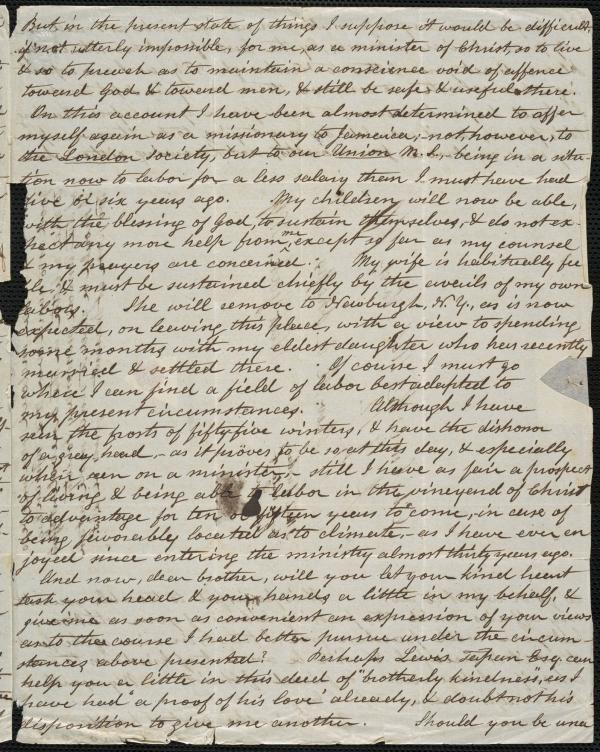 But in the present state of things I suppose it would be difficult,
if not utterly impossible, for me, as a minister of Christ so to live
& so to preach as to maintain a conscience void of offence
toward God & toward men, & still be safe & useful there.
On this account I have been almost determined to offer
myself again as a missionary to Jamaica,- not, however, to
the London Society, but to our Union M. S., being in a situa-
tion now to labor for a less salary than I must have had
five or six years ago. My children will now be able,
with the blessing of God, to sustain themselves, & do not ex-
pect any more help from me, except so far as my counsel
& my prayers are concerned. My wife is habitually fee-
ble, & must be sustained chiefly by the avails of my own
labors. She will remove to Newburgh, N.Y., as is now
expected, on leaving this place, with a view to spending
some months with my eldest daughter who has recently
married & settled there. Of course I must go
where I can find a field of labor best adapted to
my present circumstances. Although I have
seen the frosts of fifty five winters, & have the dishonor
of a gray head,- as it proves to be so at this day, & especially
when seen on a minister,- still I have as fair a prospect
of living & being able to labor in the vineyard of Christ
to advantage for ten or fifteen years to come,- in case of
being favorably located as to climate,- as I have ever en-
joyed since entering the ministry almost thirty years ago.
And now, dear brother, will you let your kind heart
task your head & your hands a little in my behalf, &
give me as soon as convenient an expression of your views
as to the course I had better pursue under the circum-
stances above presented? Perhaps Lewis Tapan Esq. can
help you a little in this deed of "brotherly kindness, as I
have had "a proof of his love" already, & doubt not his
disposition to give me another. Should you be una